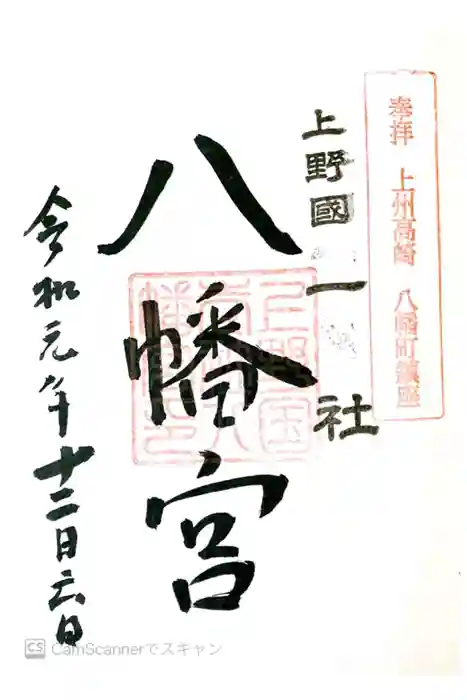 奉拝 上州高崎 八幡町鎮座
上野國一社
八幡宮
令和元年十二月六日
CS CamScannerでスキャン